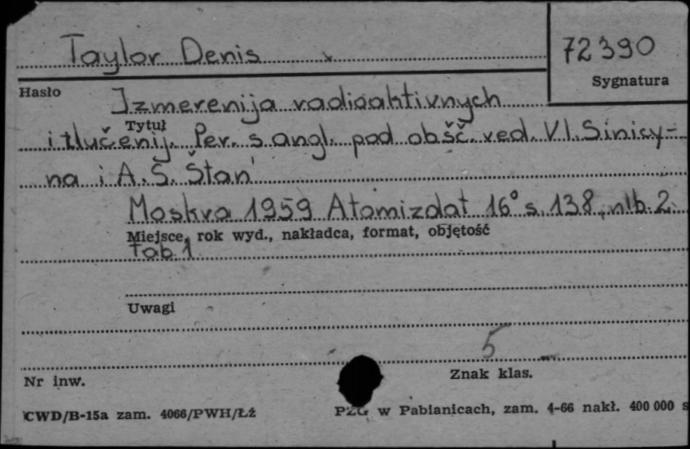 Taylor Denis
72390
Sygnatura
Hasło
Izmerenija radioaktivnych
Tytuł
i tlučenij. Per. s angl. pod obšč. red. Vl. Sinicy-
na i A. S. Štań
Moskva 1959 Atomizdat 16° s. 138, nlb. 2.
Miejsce, rok wyd., nakładca, format, objętość
tab. 1
Uwagi
5
Nr inw.
Znak klas.
CWD/B-15a zam. 4066/PWH/Łź
PZG w Pabianicach, zam. 4-66 nakł. 400 000 s